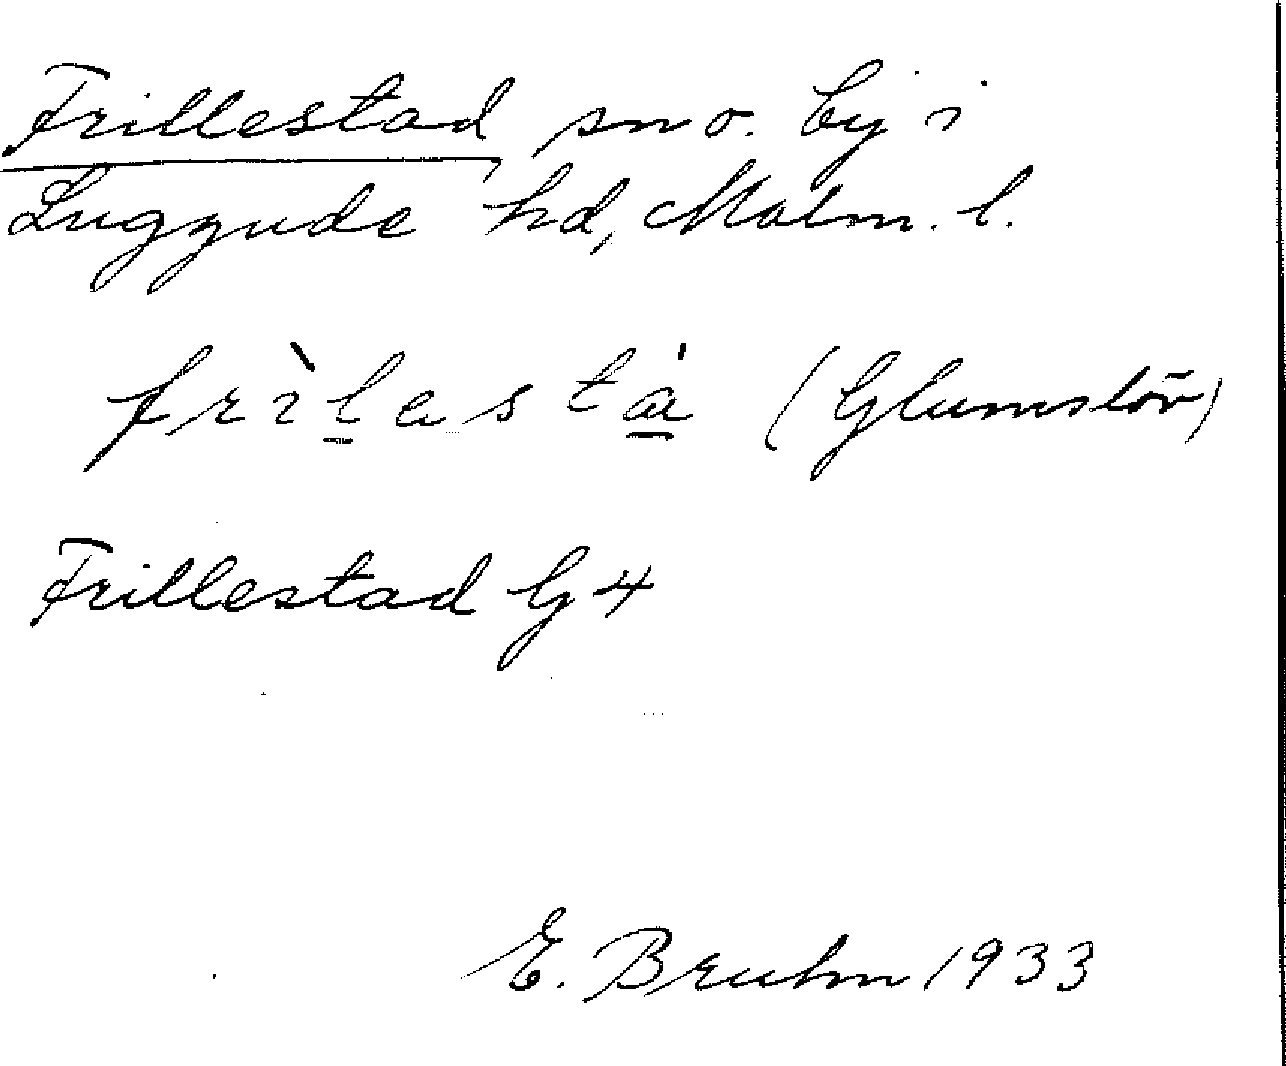 Frillestad, sn o. by i
Luggude hd, Malm. l.
frìlastá (Glumslöv)
Frillestad G4
E. Bruhn 1933